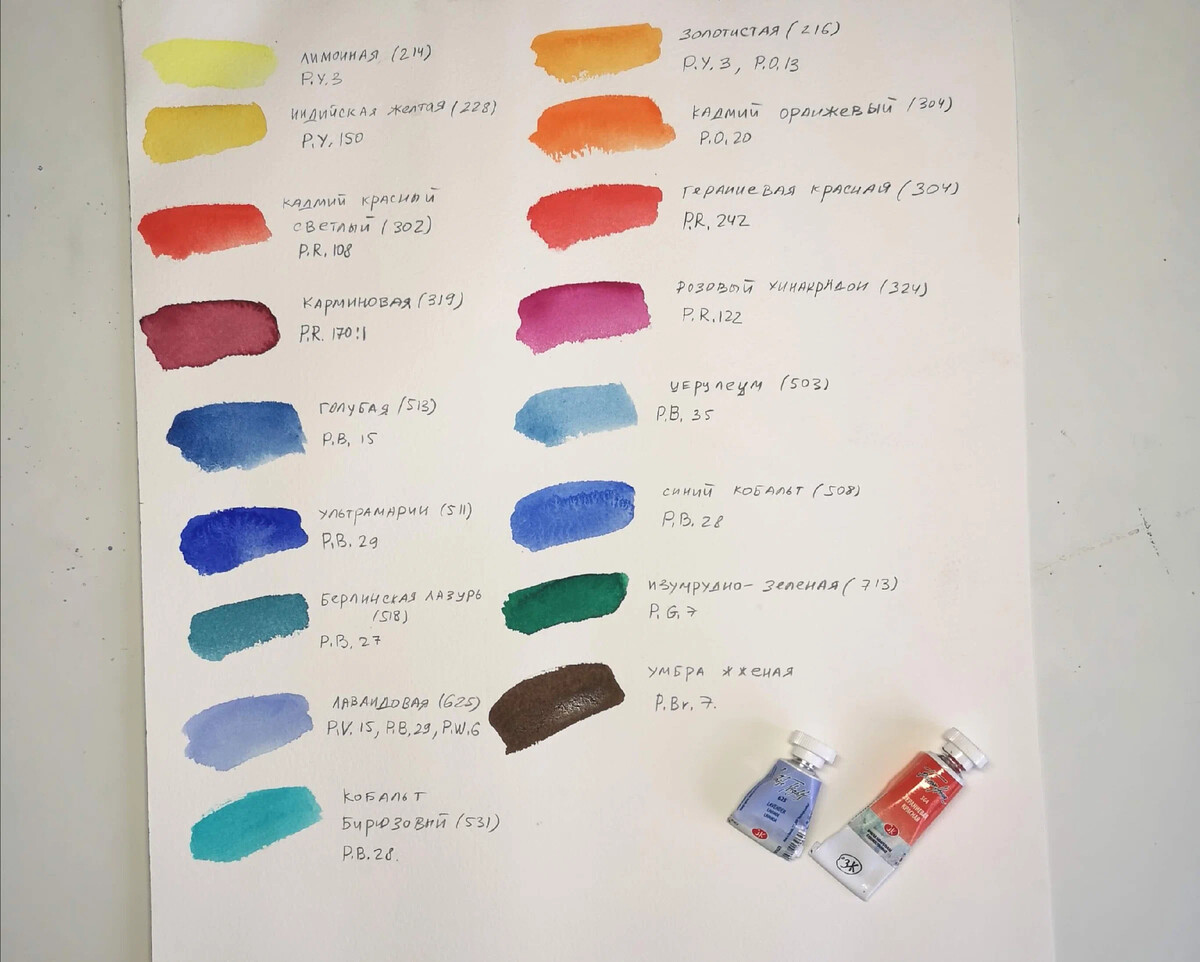 лимонная (214)
P.Y.3
индийская желтая (228)
P.Y. 150
кадмий красный
светлый (302)
P.R. 108
карминовая (319)
P.R. 170:1
голубая (513)
P.B. 15
ультрамарин (511)
P.B. 29
берлинская лазурь
(518)
P.B. 27
лавандовая (625)
P.V. 15, P.B.29, P.W.6
кобальт
бирюзовый (531)
P.B.28.
золотистая (216)
P.Y.3, P.O.13
кадмий оранжевый (304)
P.O.20
гераниевая красная (304)
P.R. 242
розовый хинакридон (324)
P.R.122
церулеум (503)
P.B. 35
синий кобальт (508)
P.B. 28
изумрудно-зеленая (713)
P.G.7
умбра жженая
P.Br.7.
LAVENDER
ЗК
КРАСНАЯ
ЗК
ЗК